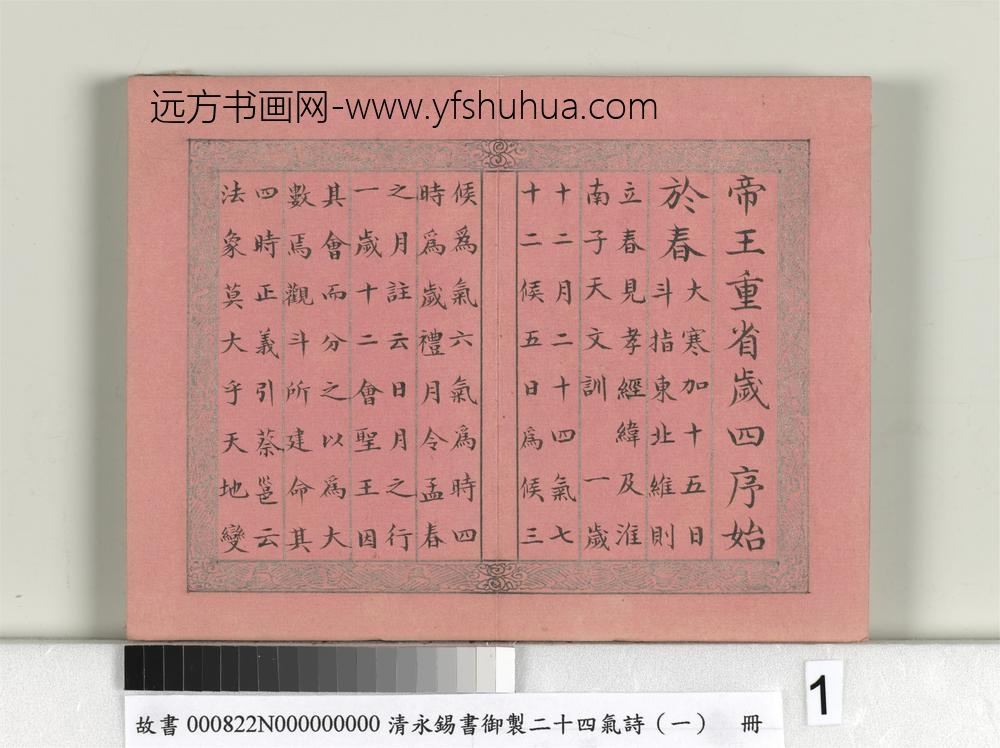 远方书画网-www.yfshuhua.com
帝王重省歲四序始
於春
大寒加十五日
斗指東北維則
立春見孝經緯及淮
南子天文訓 一歲
十二月二十四氣七
十二候五日爲候三
候爲氣六氣爲時四
時爲歲禮月令孟春
之月註云日月之行
一歲十二會聖王因
其會而分之以爲大
數焉觀斗所建命其
四時正義引蔡邕云
法象莫大乎天地變
1
故書 000822N000000000 清永錫書御製二十四氣詩（一） 冊